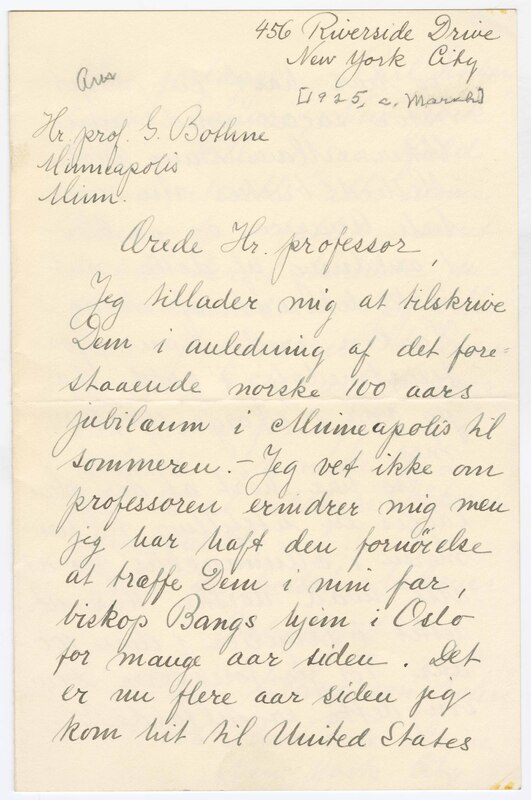 456 Riverside Drive
New York City
[1925, c. March]
Ans
Hr. prof. G. Bothne
Minneapolis
Minn.
Ærede Hr. professor,
Jeg tillader mig at tilskrive
Dem i anledning af det fore-
staaende norske 100 aars
jubilæum i Minneapolis til
sommeren. – Jeg vet ikke om
professoren erindrer mig men
jeg har haft den fornöielse
at træffe Dem i min far,
biskop Bangs hjem i Oslo
for mange aar siden. Det
er nu flere aar siden jeg
kom hit til United States